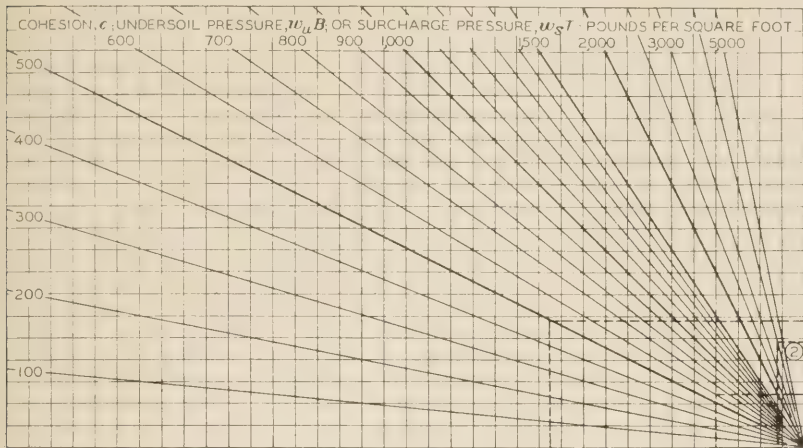 COHESION, c; UNDERSOIL PRESSURE, wᵤB; OR SURCHARGE PRESSURE, wₛT - POUNDS PER SQUARE FOOT
600 700 800 900 1000 1500 2000 3000 5000
500
400
300
200
100
②